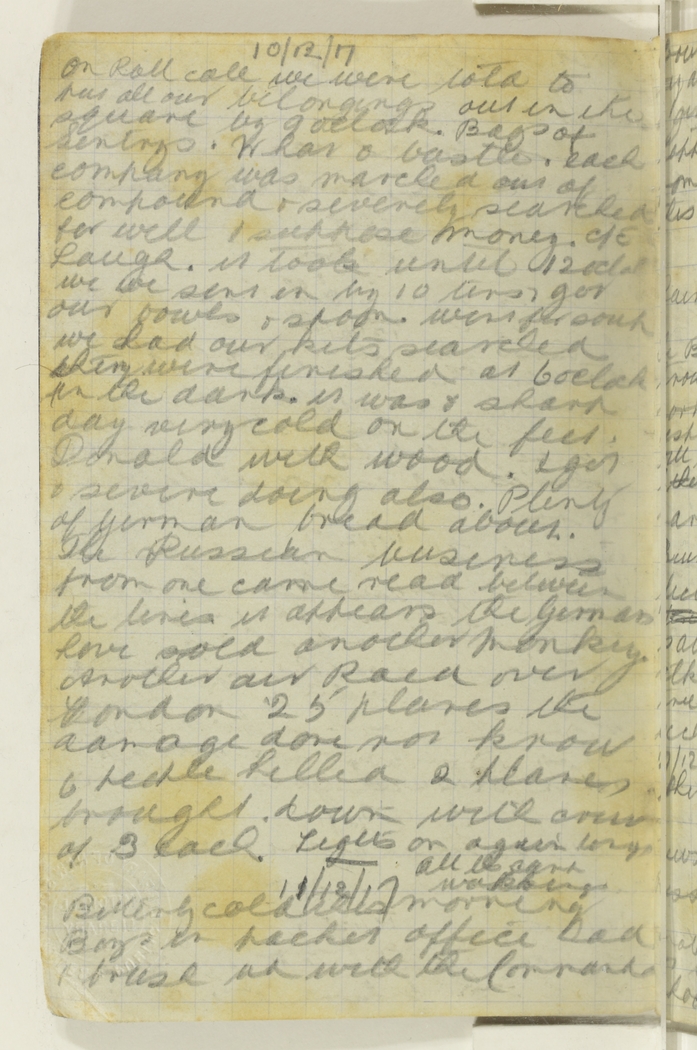 10/12/17
on Roll call we were told to
put all our belongings out in the
square by 9oclock. Bags of
sentrys. What a bustle. each
company was marched out of
compound & severely searched
for well I suppose money.
Laugh. it took until 12ocl
we sent in by 10 got
our bowls & spoon. went for soup
we had our kits searched
they were finished at 6oclock
in the dark. it was a sharp
day very cold on the feet.
Donald with wood. I got
a severe doing also. Plenty
of German bread about.
The Russian business
from one came read between
the lines it appears the Germans
have sold another monkey.
Another air Raid over
London 25 planes the
damage done not know
6 people killed 2 planes
brought down with crew
of 3 each. Lights on again
all
11/12/17
Bitterly cold this morning
Boys in packet office had
a brush up with the Command